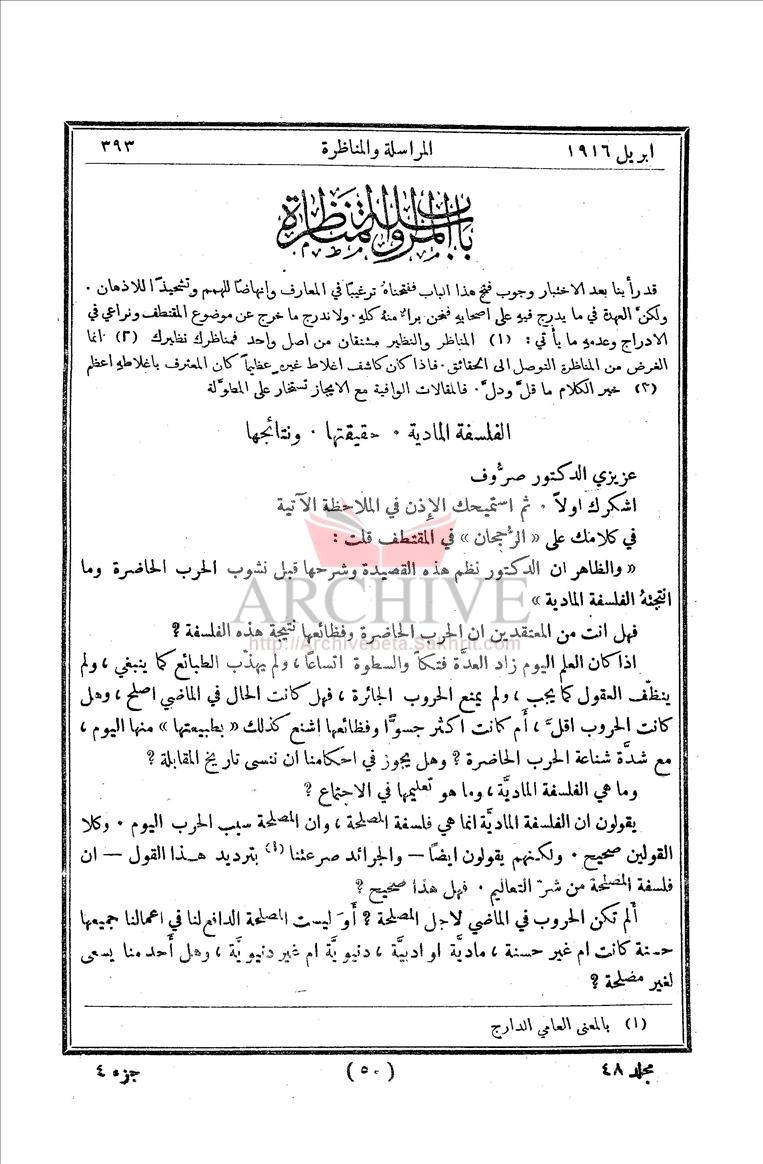 ابريل ١٩١٦ المراسلة والمناظرة ٣٩٣
باب المراسلة والمناظرة
قد رأينا بعد الاختبار وجوب فتح هذا الباب ففتحناهُ ترغيبًا في المعارف وانهاضًا للهمم وتشحيذًا للاذهان .
ولكنَّ العهدة في ما يدرج فيهِ على اصحابهِ فنحن برالا منه كلهِ . ولا ندرج ما خرج عن موضوع المقتطف ونراعي في
الادراج وعدمهِ ما يأتي : (١) المناظر والنظير مشتقان من اصل واحد فمناظرك نظيرك (٢) انما
الغرض من المناظرة التوصل الى الحقائق . فاذا كان كاشف اغلاط غيرهِ عظيمًا كان المعترف باغلاطهِ اعظم
(٣) خير الكلام ما قلَّ ودلَّ . فالمقالات الوافية مع الايجاز تستخار على المطوَّلة
الفلسفة المادية . حقيقتها . ونتائجها
عزيزي الدكتور صرُّوف
اشكرك اولاً . ثم استميحك الإذن في الملاحظة الآتية
في كلامك على « الرُّجحان » في المقتطف قلت :
« والظاهر ان الدكتور نظم هذه القصيدة وشرحها قبل نشوب الحرب الحاضرة وما
انتجتهُ الفلسفة المادية »
ARCHIVE
فهل انت من المعتقدين ان الحرب الحاضرة وفظائعها نتيجة هذه الفلسفة ؟
http://Archivebeta.Sakhrit.com
اذا كان العلم اليوم زاد العدَّة فتكًا والسطوة اتساعًا ، ولم يهذّب الطبائع كما ينبغي ، ولم
ينظّف العقول كما يجب ، ولم يمنع الحروب الجائرة ، فهل كانت الحال في الماضي اصلح ، وهل
كانت الحروب اقلَّ ، أَم كانت اكثر جسوًّا وفظائعها اشنع كذلك « بطبيعتها » منها اليوم ،
مع شدَّة شناعة الحرب الحاضرة ؟ وهل يجوز في احكامنا ان ننسى تاريخ المقابلة ؟
وما هي الفلسفة الماديَّة ، وما هو تعليمها في الاجتماع ؟
يقولون ان الفلسفة الماديَّة انما هي فلسفة المصلحة ، وان المصلحة سبب الحرب اليوم . وكلا
القولين صحيح . ولكنهم يقولون ايضًا — والجرائد صرعتنا (١) بترديد هذا القول — ان
فلسفة المصلحة من شرّ التعاليم . فهل هذا صحيح ؟
أَلم تكن الحروب في الماضي لاجل المصلحة ؟ أَوَ ليست المصلحة الدافع لنا في اعمالنا جميعها
حسنة كانت ام غير حسنة ، ماديَّة او ادبيَّة ، دنيويَّة ام غير دنيويَّة ، وهل أَحد منا يسعى
لغير مصلحة ؟
(١) بالمعنى العامي الدارج
مجلد ٤٨ (٥٠) جزء ٤